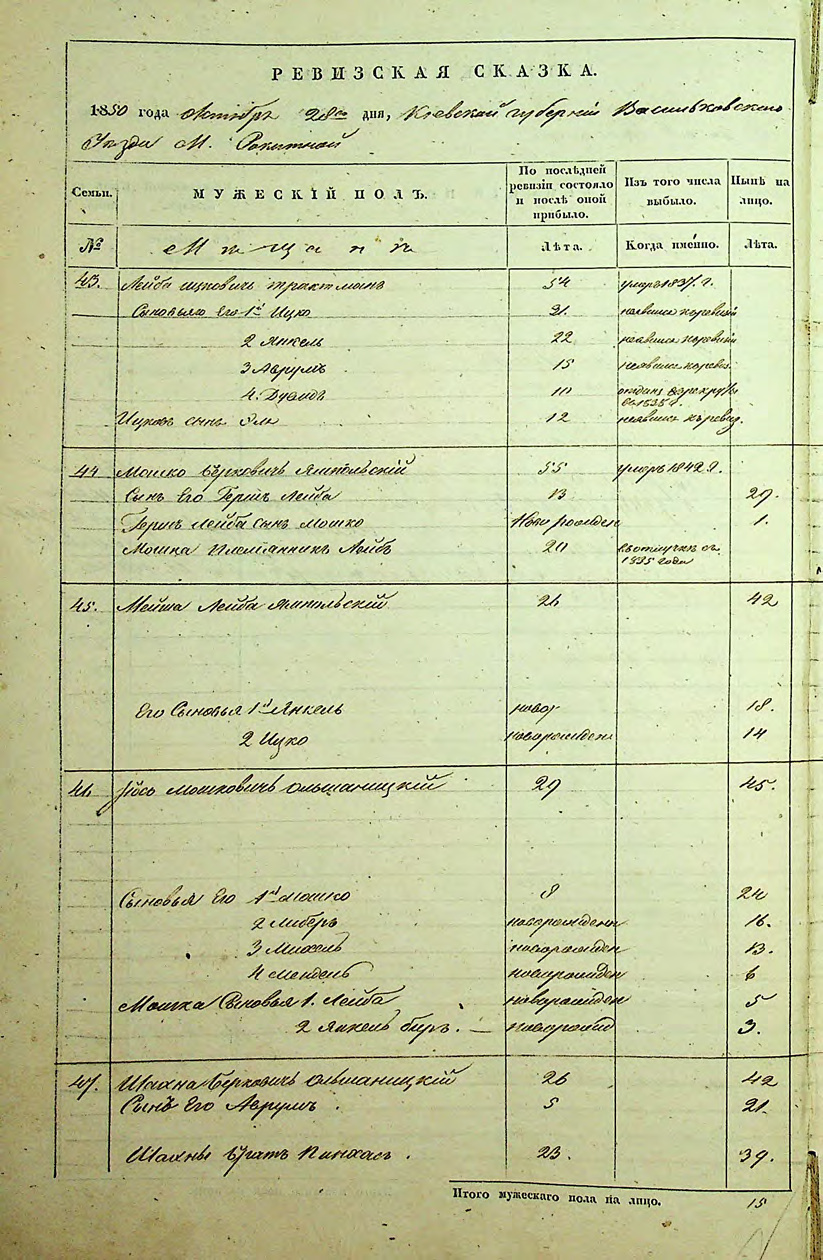 РЕВИЗСКАЯ СКАЗКА.
1850 года Октября 28го дня, Кіевской губерніи Васильковскаго
Уезда М. Рокитной
Семьи. МУЖЕСКІЙ ПОЛЪ. По послѣдней ревизіи состояло и послѣ оной прибыло. Изъ того числа выбыло. Нынѣ на лицо.
№ Мѣщанѣ Лѣта. Когда именно. Лѣта.
43. Лейба Ицковичь Трактманъ 54 умеръ 1837. г.
Сыновья Его 1й Ицко 31. неявился къ ревизіи
2 Янкель 22 неявился къ ревизіи
3 Аврумъ 15 неявился къ ревиз.
4. 10 отданъ въ рекруты
въ 1835 г.
Ицковъ сынъ 12 неявился къ ревиз.
44 Мошко Берковичь Ямпольскій 55 умеръ 1842 г.
Сынъ Его Гершъ Лейба 13 29.
Гершъ Лейба сынъ Мошко Новорожден 1.
Мошка Племянникъ Лейбъ 20 въ отлучкѣ съ
1835 года
45. Мейша Лейба Ямпольскій 26 42
Его Сыновья 1й Янкель новор 18.
2 Ицко новорожден 14
46 Іось Мошковичь Ольшаницкій 29 45.
Сыновья Его 1й Мошко 8 24
2 Либеръ новорожденн 16.
3 Михель новорожден 13.
4 Мендель новорожден 6
Мошка Сыновья 1. Лейба новорожден 5
2 Янкель Беръ. — новорожд 3.
47. Шахна Берковичь Ольшаницкій 26 42
Сынъ Его Аврумъ. 5 21.
Шахны Братъ Пинхасъ. 23. 39.
Итого мужескаго пола на лицо. 15